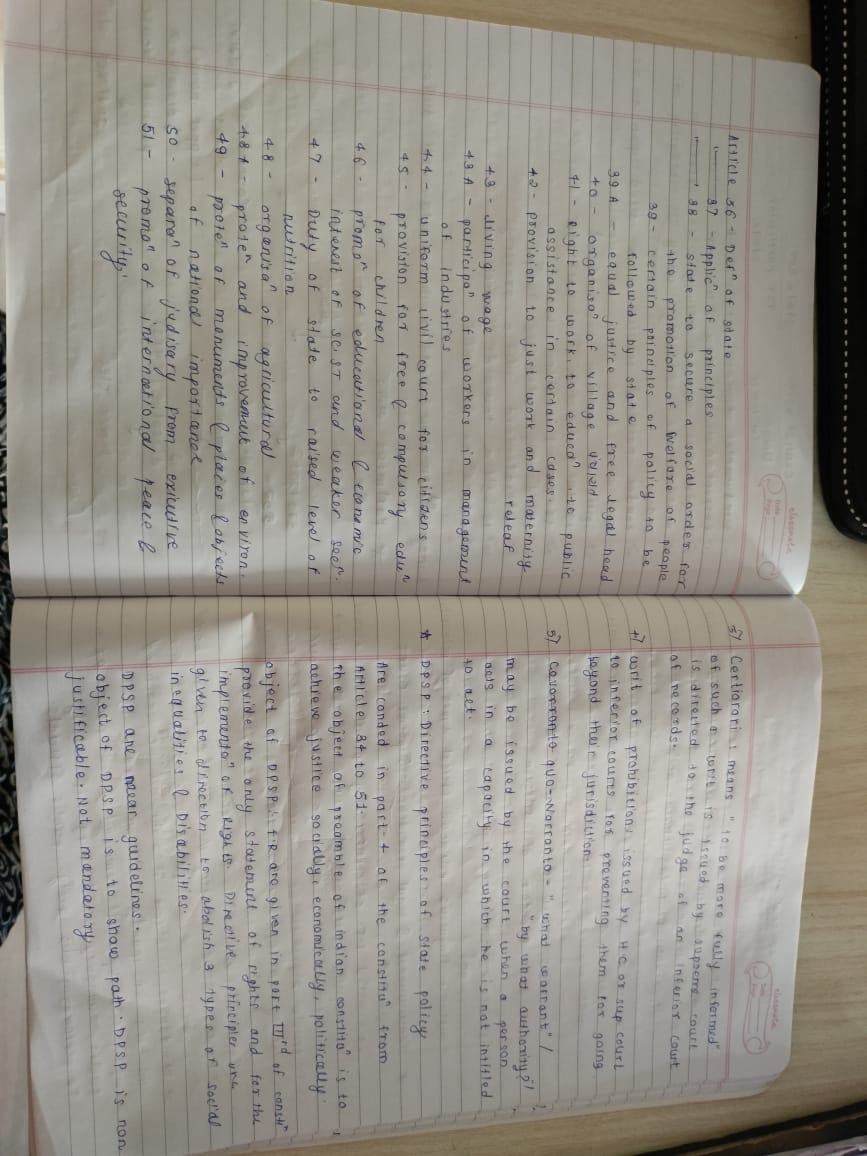 classmate
Date
Page
Article 36 - Defⁿ of state
"——, 37 - Applicⁿ of principles
"——, 38 - state to secure a social order for
the promotion of welfare of people
39 - certain principles of policy to be
followed by state
39 A - equal justice and free legal head
40 - organisaⁿ of village
41 - Right to work, to educaⁿ, to public
assistance in certain cases.
42 - provision to just work and maternity
releaf
43 - living wage
43 A - participaⁿ of workers in management
of industries
44 - uniform civil court for citizens
45 - provision for free & compulsory eduⁿ
for children
46 - promoⁿ of educational & economic
interest of SC, ST and weaker secⁿ.
47 - Duty of state to raised level of
nutrition
48 - organisaⁿ of agricultural
48 A - proteⁿ and improvement of environ.
49 - proteⁿ of monuments & places & objects
of national importance
50 - separaⁿ of judisary from exicutive
51 - promoⁿ of international peace &
security.
classmate
Date
Page
3) Certiorari : means "to be more fully informed"
of such a writ is issued by supreme court
is directed to the judge of an inferior court
of records.
4) writ of prohibition: issued by HC or sup court
to inferior courts for preventing them for going
beyond their jurisdiction
5) quo-warranto - "what warrant" /
"by what authority?"
may be issued by the court when a person
acts in a capacity in which he is not intitled
to act.
* DPSP : Directive principles of state policy
Are conded in part-4 of the constituⁿ from
Article 34 to 51.
the object of preamble of indian constituⁿ is to
achieve justice socially, economically, politically.
object of DPSP : FR are given in part IIIrd of constiⁿ
provide the only statement of rights and for the
implementaⁿ of Rights. Directive principles are
given to direction to abolish 3 types of social
inequalities & Disabilities.
DPSP are mear guidelines.
object of DPSP is to show path. DPSP is non
justificable. Not mandatory